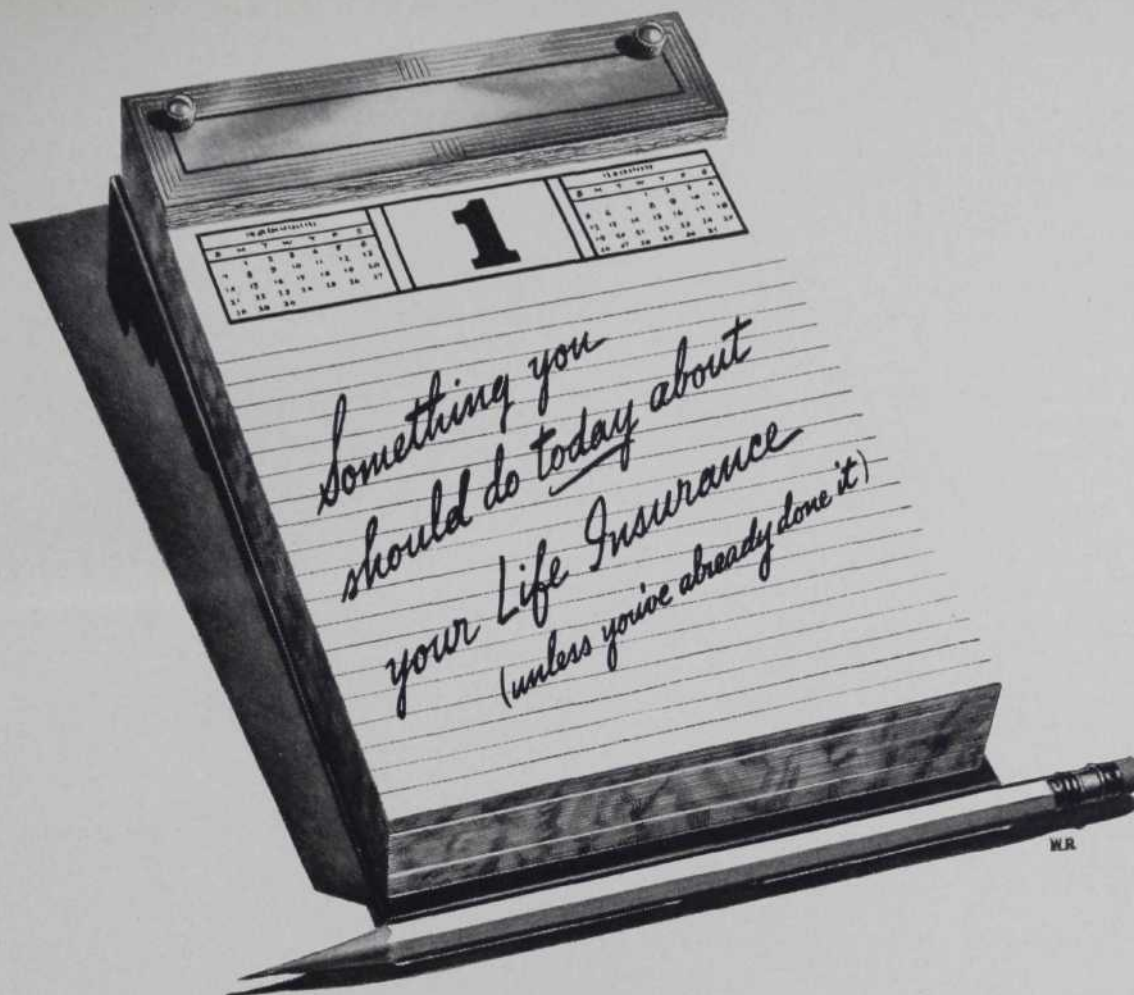 1
Something you
should do today about
your Life Insurance
(unless you've already done it)
W.R.